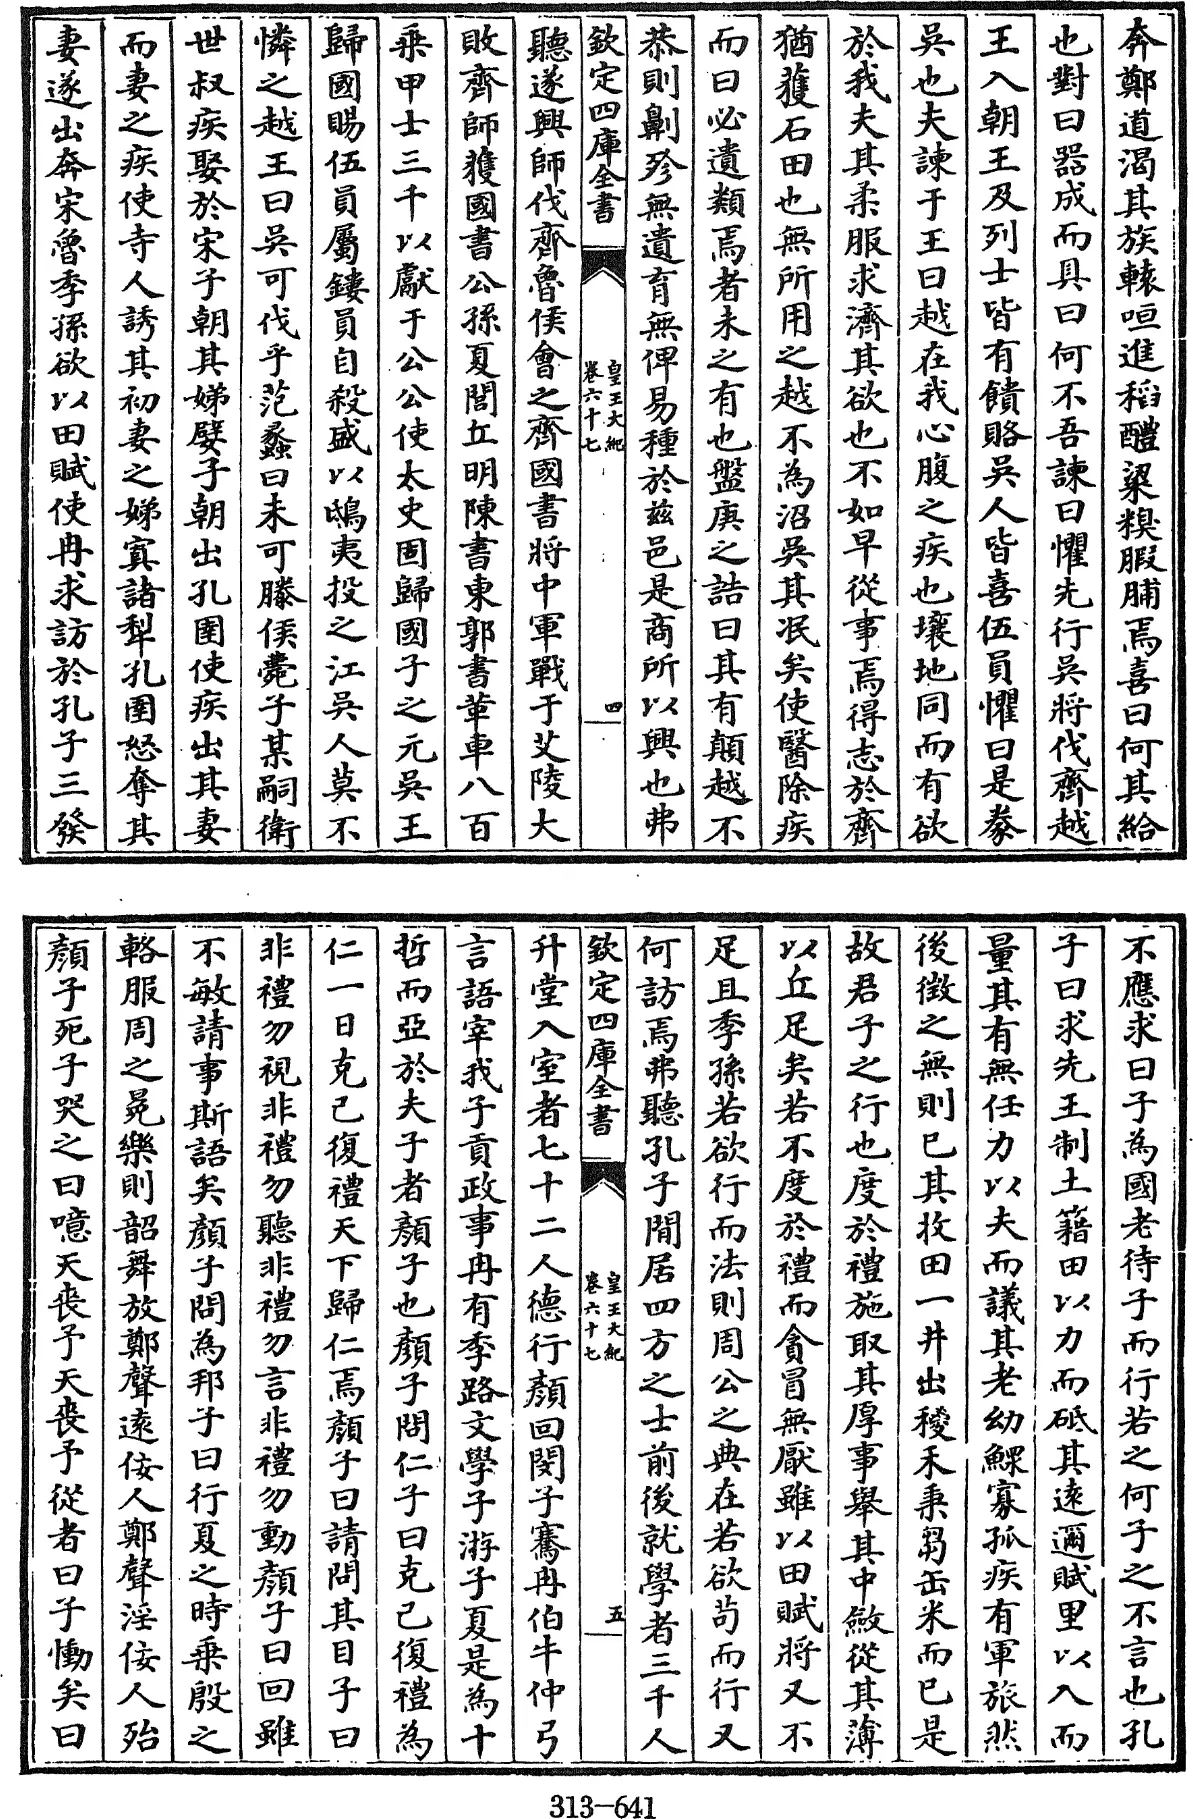 奔鄭道渴其族轅咺進稻醴粱糗腶脯焉喜曰何其給
也對曰器成而具曰何不吾諫曰懼先行吳將伐齊越
王入朝王及列士皆有饋賂吳人皆喜伍員懼曰是豢
吳也夫諫于王曰越在我心腹之疾也壤地同而有欲
於我夫其柔服求濟其欲也不如早從事焉得志於齊
猶獲石田也無所用之越不為沼吳其泯矣使醫除疾
而曰必遺類焉者未之有也盤庚之誥曰其有顛越不
恭則劓殄無遺育無俾易種於茲邑是商所以興也弗
欽定四庫全書
皇王大紀
卷六十七
四
聽遂興師伐齊魯侯會之齊國書將中軍戰于艾陵大
敗齊師獲國書公孫夏閭丘明陳書東郭書革車八百
乘甲士三千以獻于公公使太史固歸國子之元吳王
歸國賜伍員屬鏤員自殺盛以鴟夷投之江吳人莫不
憐之越王曰吳可伐乎范蠡曰未可滕侯薨子某嗣衛
世叔疾娶於宋子朝其娣嬖子朝出孔圉使疾出其妻
而妻之疾使寺人誘其初妻之娣寘諸犁孔圉怒奪其
妻遂出奔宋魯季孫欲以田賦使冉求訪於孔子三發
不應求曰子為國老待子而行若之何子之不言也孔
子曰求先王制土籍田以力而砥其遠邇賦里以入而
量其有無任力以夫而議其老幼鰥寡孤疾有軍旅然
後徵之無則已其收田一井出稯禾秉芻缶米而已是
故君子之行也度於禮施取其厚事舉其中斂從其薄
以丘足矣若不度於禮而貪冒無厭雖以田賦將又不
足且季孫若欲行而法則周公之典在若欲苟而行又
何訪焉弗聽孔子閒居四方之士前後就學者三千人
欽定四庫全書
皇王大紀
卷六十七
五
升堂入室者七十二人德行顏回閔子騫冉伯牛仲弓
言語宰我子貢政事冉有季路文學子游子夏是為十
哲而亞於夫子者顏子也顏子問仁子曰克己復禮為
仁一日克己復禮天下歸仁焉顏子曰請問其目子曰
非禮勿視非禮勿聽非禮勿言非禮勿動顏子曰回雖
不敏請事斯語矣顏子問為邦子曰行夏之時乘殷之
輅服周之冕樂則韶舞放鄭聲遠佞人鄭聲淫佞人殆
顏子死子哭之曰噫天喪予天喪予從者曰子慟矣曰
313-641